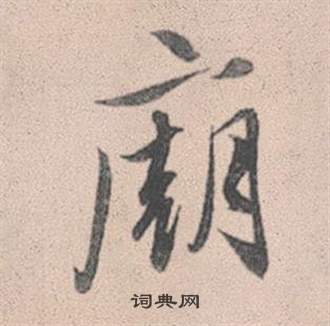 廟
词典网